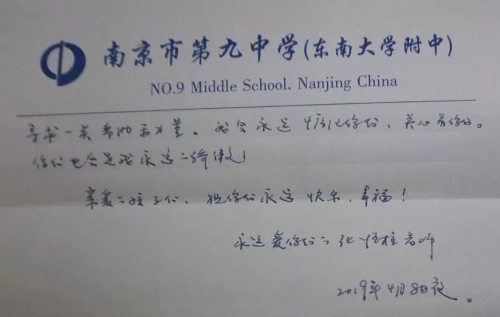 南京市第九中学(东南大学附中)
NO.9 Middle School. Nanjing China
寻找一类 。我会永远惦记你们，关心着你们。
你们也会是我永远的骄傲！
亲爱的孩子们，祝你们永远快乐，幸福！
永远爱你们的张悟柱老师
2019年4月8日夜。